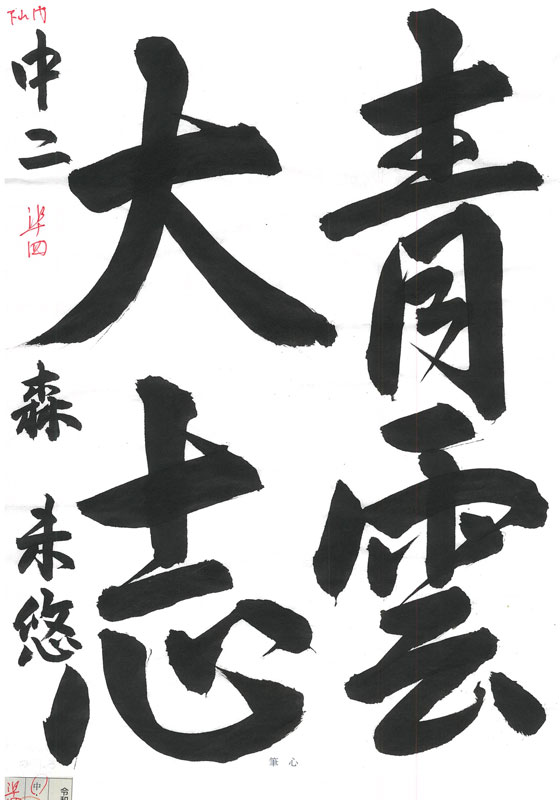 青雲
大志
中二
森 未悠
準四
筆心
中
令和